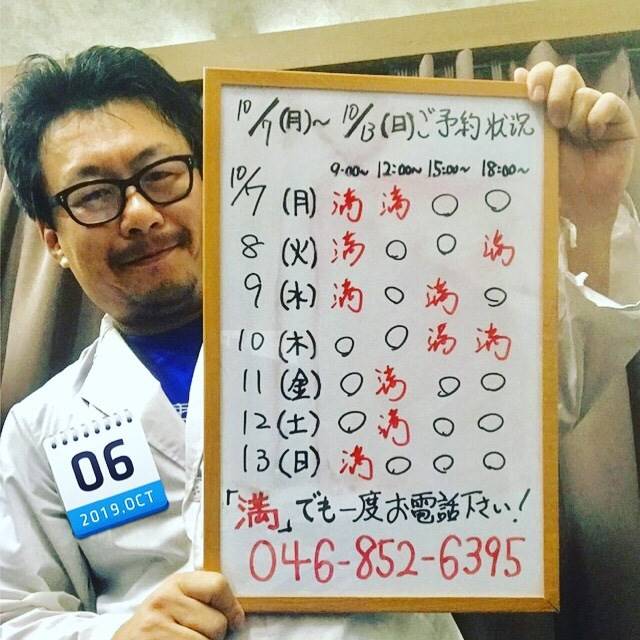 10/7(月)~10/13(日)ご予約状況
9:00~ 12:00~ 15:00~ 18:00~
10/7(月) 満 満 ○ ○
8(火) 満 ○ ○ 満
9(水) 満 ○ 満 ○
10(木) ○ ○ 満 満
11(金) ○ 満 ○ ○
12(土) ○ 満 ○ ○
13(日) 満 ○ ○ ○
「満」でも一度お電話下さい!
046-852-6395
06
2019.OCT